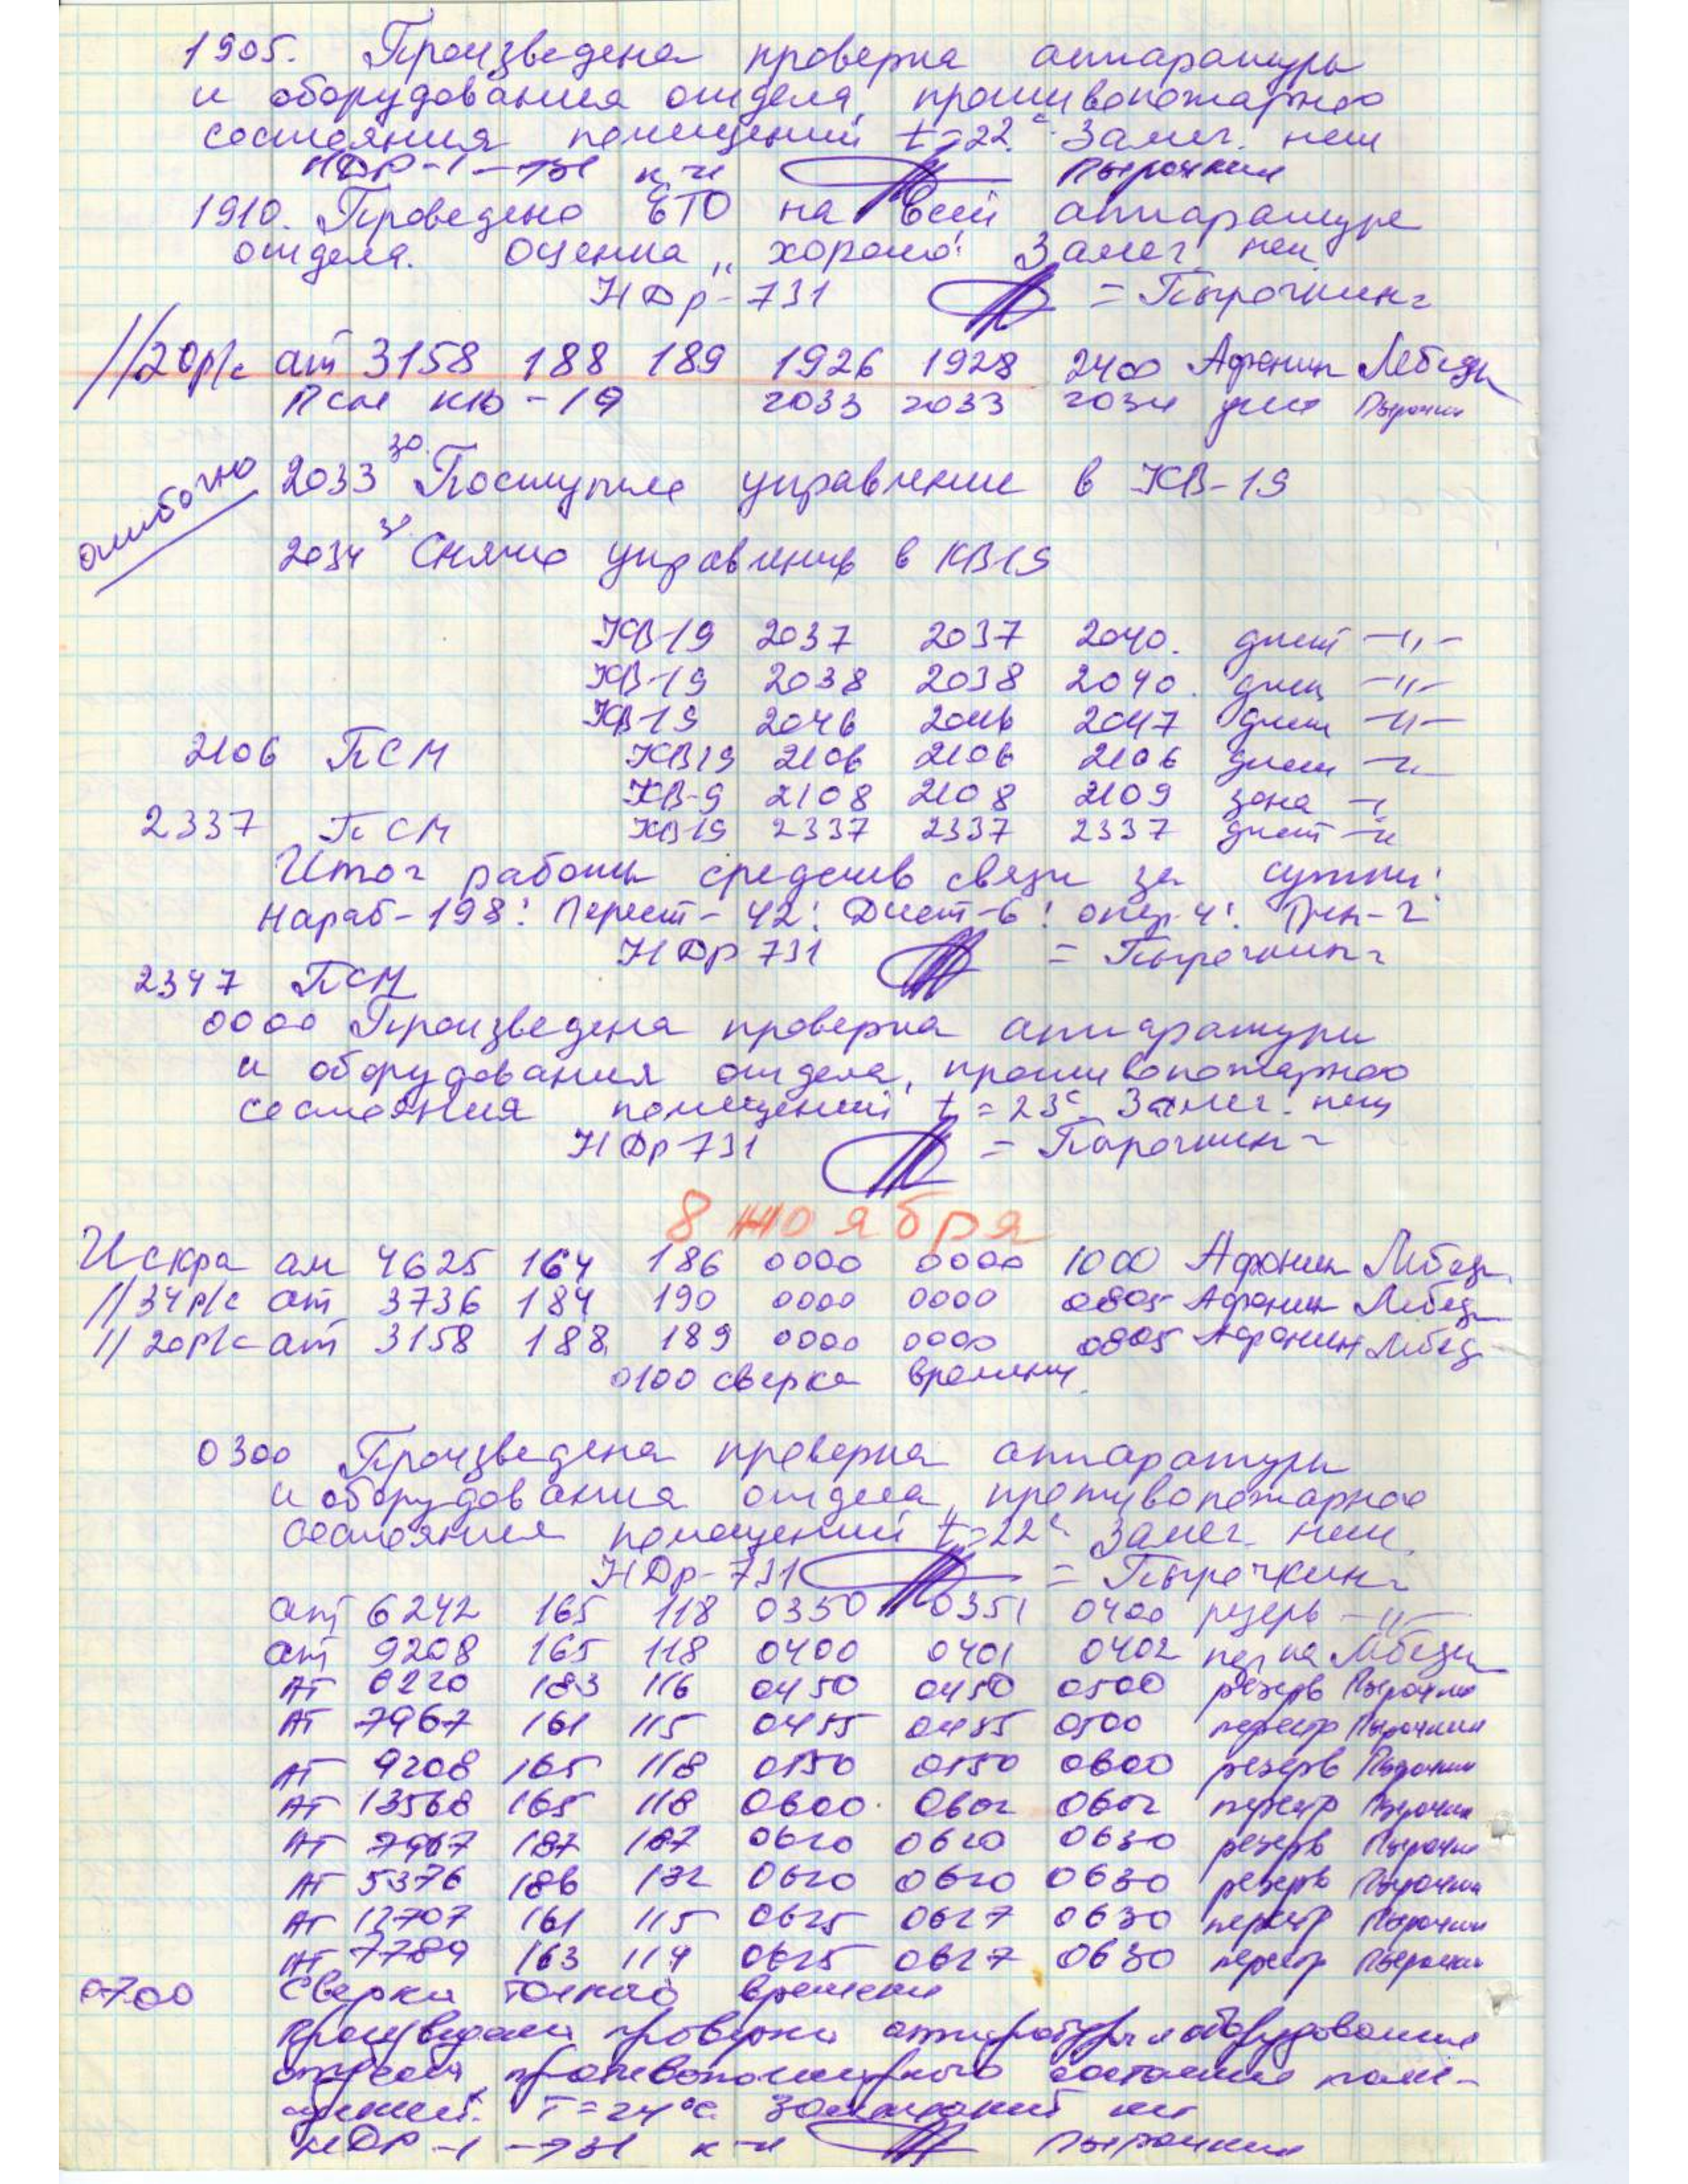 1905. Произведена проверка аппаратуры
и оборудования отдела, противопожарного
состояния помещений t=22°. Замеч. нет
НДР-1-731 к-н Пырочкин
1910. Проведено ЕТО на всей аппаратуре
отдела. Оценка „хорошо". Замеч нет
НДр-731 = Пырочкин =
//20р/с ат 3158 188 189 1926 1928 2400 Афонин Лебедь
ПСМ КВ-19 2033 2033 2034 дист Пырочкин
ошибочно
2033³⁰ Поступило управление в КВ-19
2034³⁰ Снято управление в КВ19
КВ-19 2037 2037 2040. дист -"-
КВ-19 2038 2038 2040. дист -"-
КВ19 2046 2046 2047 дист -"-
2106 ПСМ КВ19 2106 2106 2106 дист -"-
КВ-9 2108 2108 2109 зона -"-
2337 ПСМ КВ19 2337 2337 2337 дист -"-
Итог работы средств связи за сутки:
Нараб-198: Перест-42: Дист-6: опер-4:
НДр 731 = Пырочкин =
2347 ПСМ
0000 Произведена проверка аппаратуры
и оборудования отдела, противопожарного
состояния помещений t=23°. Замеч. нет
НДр 731 = Пырочкин =
8 ноября
Искра ат 4625 164 186 0000 0000 1000 Афонин Лебедь
//34р/с ат 3736 184 190 0000 0000 0805 Афонин Лебедь
//20р/с ат 3158 188 189 0000 0000 0805 Афонин Лебедь
0100 сверка времени
0300 Произведена проверка аппаратуры
и оборудования отдела, противопожарного
состояния помещений t=22°. Замеч. нет.
НДр-731 = Пырочкин =
ат 6242 165 118 0350 0351 0400 резерв -"-
ат 9208 165 118 0400 0401 0402 Лебедь
АТ 6220 183 116 0450 0450 0500 резерв Пырочкин
АТ 7967 161 115 0455 0455 0500 перестр Пырочкин
АТ 9208 165 118 0550 0550 0600 резерв Пырочкин
АТ 13568 165 118 0600 0602 0602 перестр Пырочкин
АТ 7967 187 187 0620 0620 0630 резерв Пырочкин
АТ 5376 186 132 0620 0620 0630 резерв Пырочкин
АТ 12707 161 115 0625 0627 0630 перестр Пырочкин
АТ 7789 163 114 0625 0627 0630 перестр Пырочкин
0700 Сверка точного времени
Произведена проверка аппаратуры и оборудования
отдела, противопожарного состояния поме-
щений. Т=24°С. Замечаний нет
НДР-1-731 к-н Пырочкин